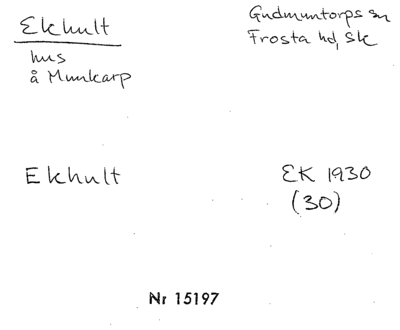 Ekhult
hus
å Munkarp
Gudmuntorps sn
Frosta hd, Sk
Ekhult
EK 1930
(30)
Nr 15197